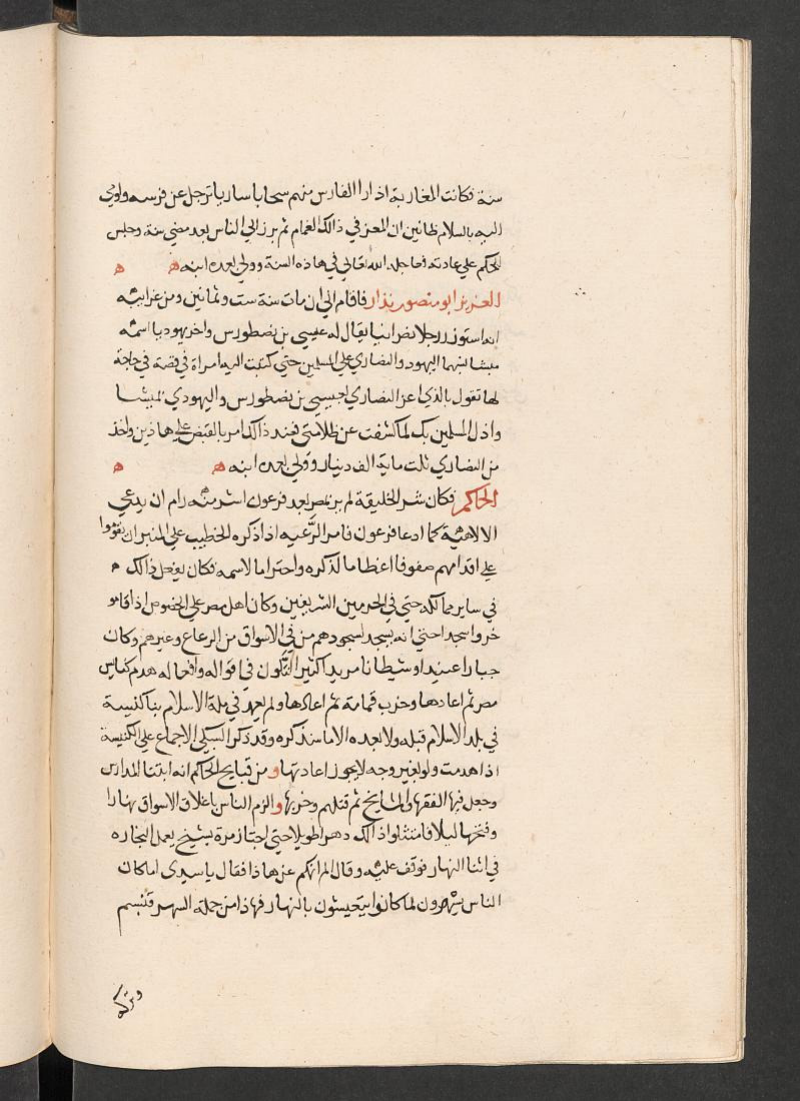 سنة فكانت المغاربة اذا را الفارس منهم سحابا ساريا ترجل عن فرسه واومي
اليه بالسلام ظانين ان المعز في ذالك الغمام ثم برز الي الناس بعد مضي سنة وجلس
للحكم علي عادته فعاجله الله تعالي في هاذه السنة وولي بعده ابنه ه ه
العزيز ابو منصور نذار فاقام الي ان مات سنة ست وثمانين ومن غرايبه
انه استوزر رجلا نصرانيا يقال له عيسي بن نصطورس واخر يهوديا اسمه
ميشا اليهود والنصاري علي المسلمين حتي كتبت اليه امراة في قصة في حاجة
لها تقول بالذي اعز النصاري بعيسي بن نصطورس واليهودي بميشا
واذل المسلمين بك لما كشفت عن ظلامتي فعند ذالك امر بالقبض علي هاذين واخذ
من النصاري ثلث ماية الف دينار وولي بعده ابنه ه ه
الحاكم فكان شر الخليقة لم ير بمصر بعد فرعون اشر منه رام ان يدعي
الالاهية كما ادعا فرعون فامر الرعيه اذا ذكره الخطيب علي المنبر ان يقوموا
علي اقدامهم صفوفا اعظاما لذكره واحتراما لاسمه فكان يفعل ذالك ه
في ساير ممالكه حتي في الحرمين الشريفين وكان اهل مصر علي الخصوص اذا قامو
خروا سجدا حتي انه يسجد لسجودهم من في الاسواق من الرعاع وغيرهم وكان
جبارا عنيدا وشيطانا مريدا كثير التلون في اقواله وافعاله هدم كنايس
مصر ثم اعادها وخرب قمامة ثم اعادها ولم يعهد في ملة الاسلام بنا كنيسة
في بلد الاسلام قبله ولا بعده الا ما سنذكره وقد ذكر السبكي الاجماع علي الكنيسة
اذا هدمت ولو بغير وجه لا يجوز اعادتها ومن قبايح الحاكم انه ابتنا المدارس
وجعل فيها الفقها والمشايخ ثم قتلهم وخربها والزم الناس باغلاق الاسواق نهارا
وفتحها ليلا فامتثلوا ذالك دهرا طويلا حتي اجتاز مرة بشيخ يعمل النجاره
في اثنا النهار فوقف عليه وقال الم انهكم عن هاذا فقال يا سيدي اما كان
الناس يسهرون لما كانوا يتعيشون بالنهار فهاذا من جملة السهر فتبسم
وتركه